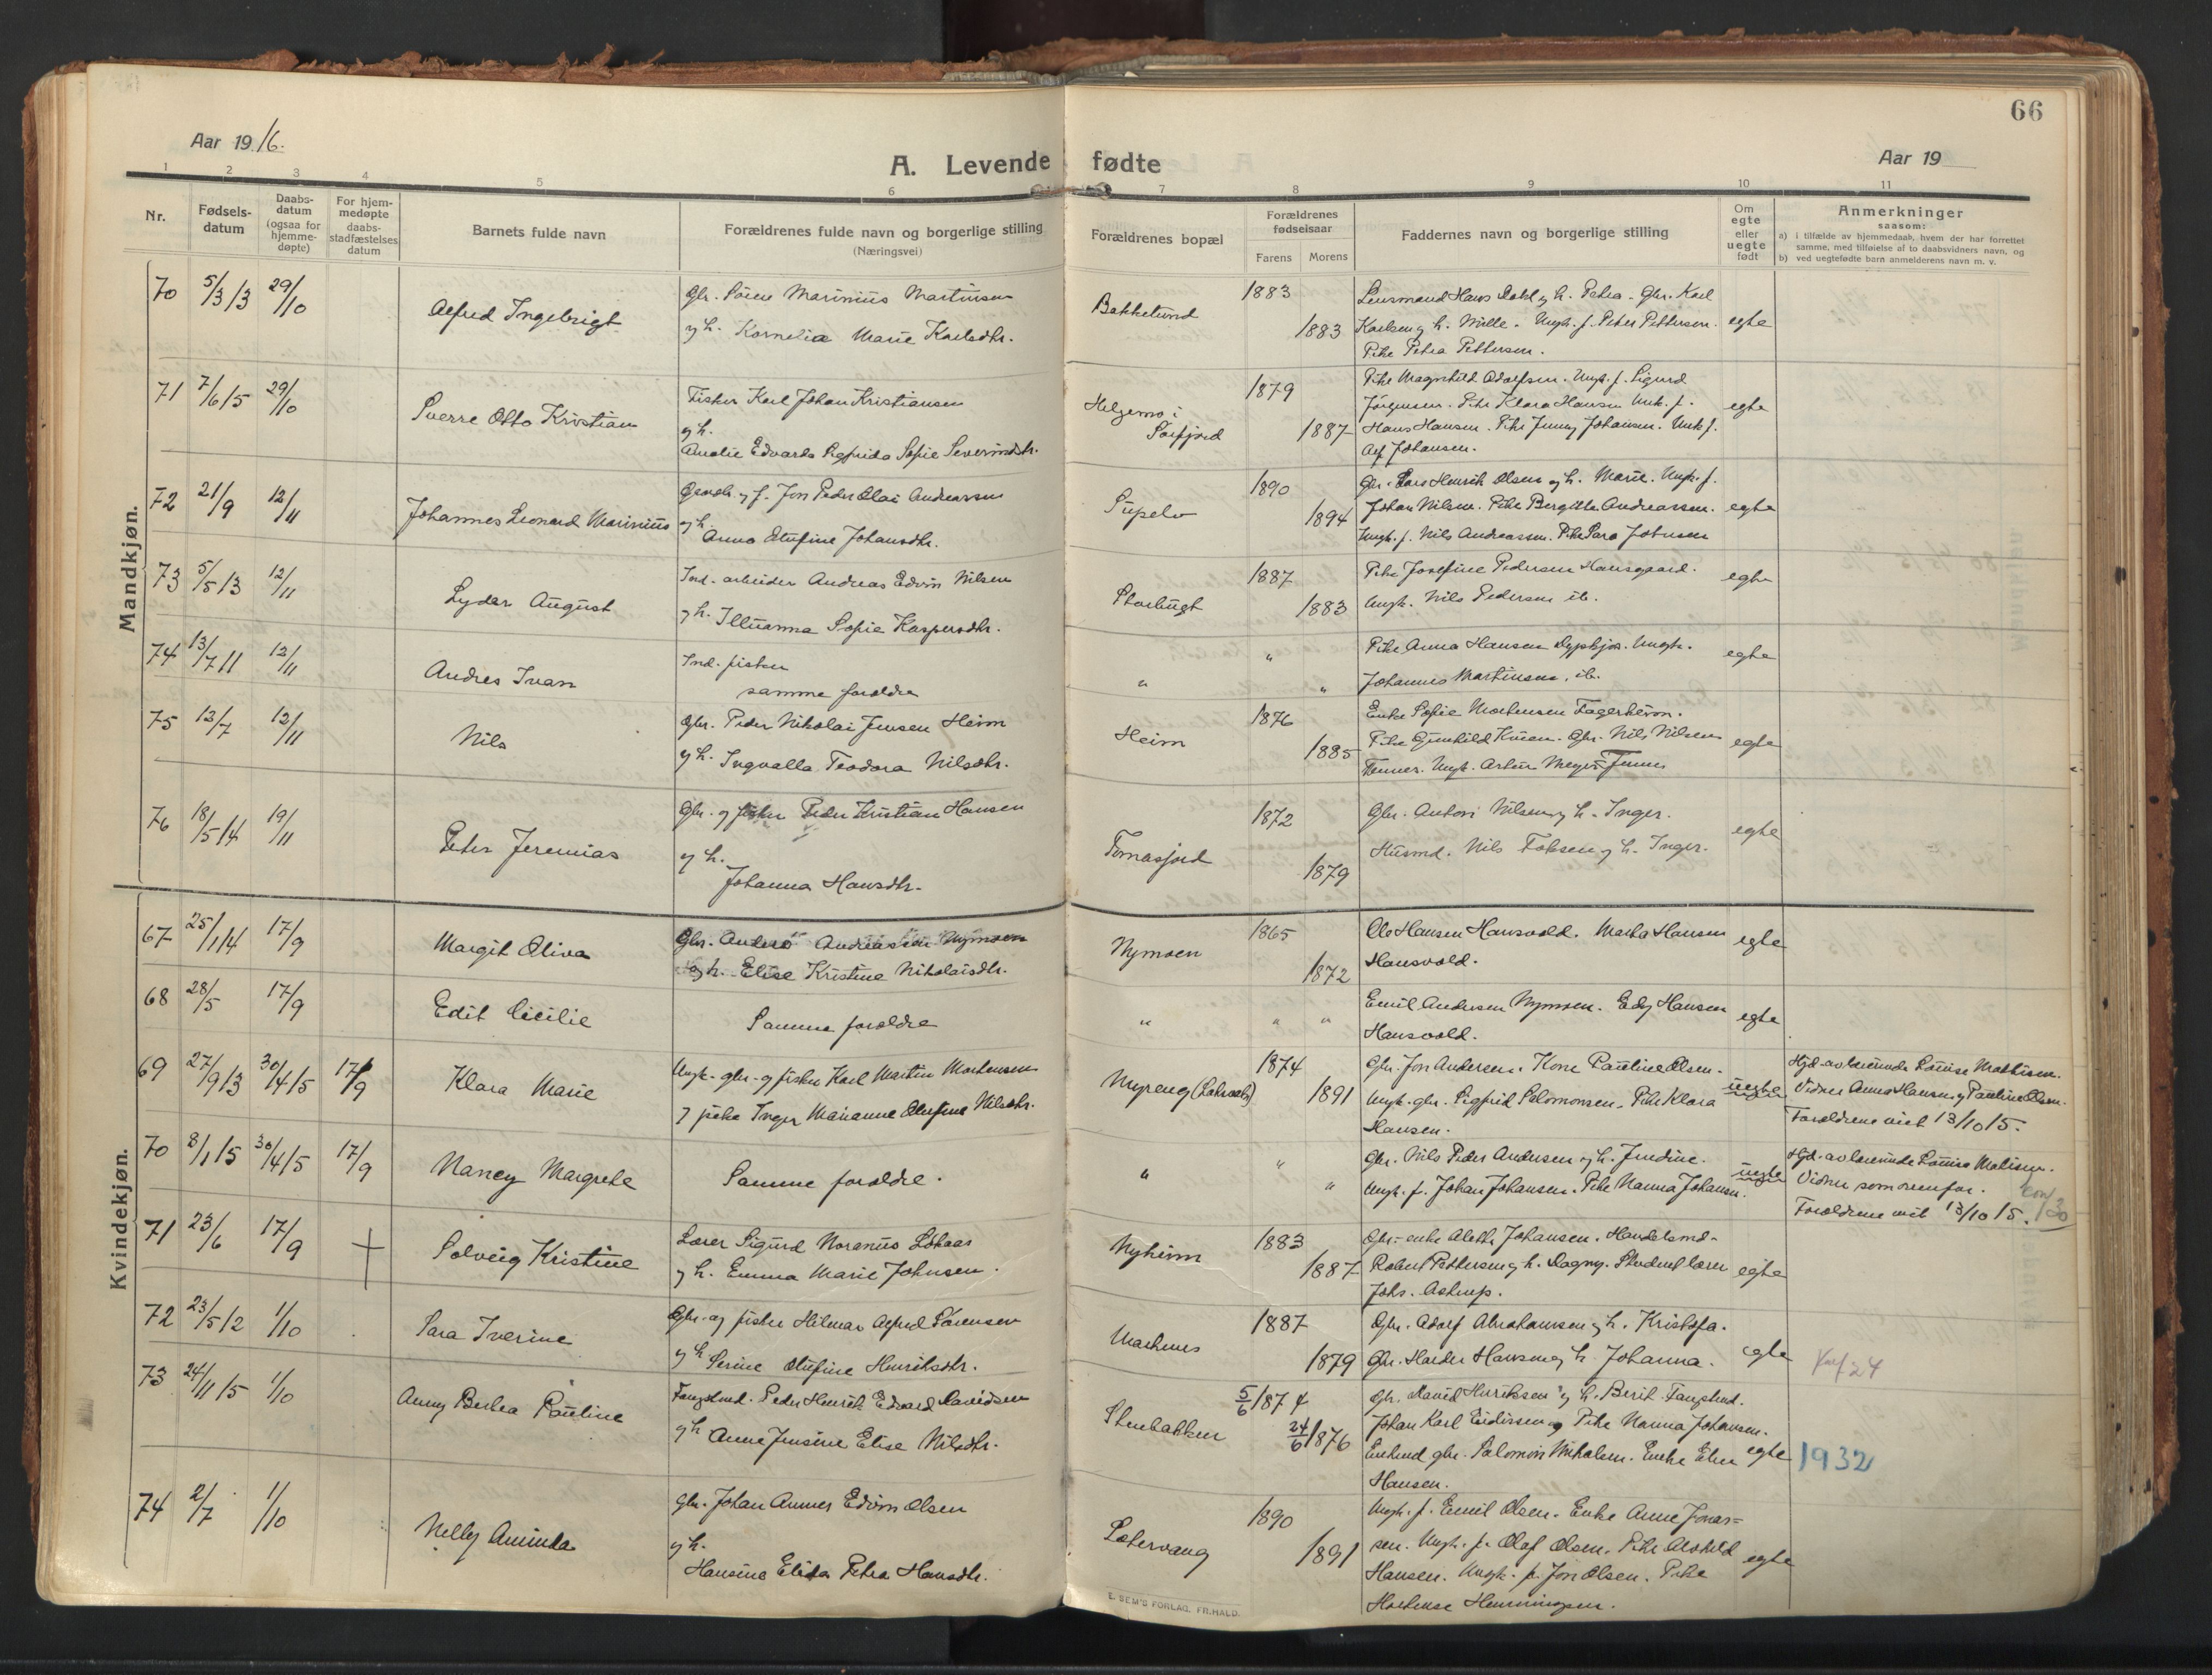 66
Aar 1916.
A. Levende fødte
Aar 19
1 2 3 4 5 6 7 8 9 10 11
Nr.
Fødsels-
datum
Daabs-
datum
(ogsaa for
hjemme-
døpte)
For hjem-
medøpte
daabs-
stadfæstelses
datum
Barnets fulde navn
Forældrenes fulde navn og borgerlige stilling
(Næringsvei)
Forældrenes bopæl
Forældrenes
fødselsaar
Farens Morens
Faddernes navn og borgerlige stilling
Om
egte
eller
uegte
født
Anmerkninger
saasom:
a) i tilfælde av hjemmedaab, hvem der har forrettet
samme, med tilføielse af to daabsvidners navn, og
b) ved uegtefødte barn anmelderens navn m. v.
Mandkjøn.
70 5/3 13 29/10 Alfred Ingebrigt
Gbr. Sören Marinius Martinsen
og h. Kornelia Marie Karlsdtr.
Bakkelund 1883 1883
Lensmand Hans Dahl og h. Petra. Gbr. Karl
Karlsen og h. Mille. Ungk. f. Peter Pettersen.
Pike Petra Pettersen.
egte
71 7/6 15 29/10 Sverre Otto Kristian
Fisker Karl Johan Kristiansen
og h.
Amalie Edvarda Sigfrida Sofie Severinsdtr.
Helgemo i
Sörfjord
1879 1887
Pike Magnhild Adolfsen. Ungk. f. Sigurd
Jörgensen. Pike Klara Hansen Unk. f.
Hans Hansen. Pike Jenny Johansen. Unk f.
Alf Johansen.
egte
72 21/9 12/11 Johannes Leonard Marinius
Gaardbr. og f. Jon Peder Olai Andreassen
og h.
Anna Olufine Johansdtr.
1890 1894
Gbr. Lars Henrik Olsen og h. Marie. Ungk. f.
Johan Nilsen. Pike Bergitte Andreassen.
Ungk. f. Nils Andreassen. Pike Sara Johnsen
egte
73 5/5 13 12/11 Lyder August
Ind. arbeider Andreas Edvin Nilsen
og h. Illuanna Sofie Kaspersdtr.
Storbugt 1887 1883
Pike Josefine Pedersen Hansgaard.
Ungk. Nils Pedersen ib.
egte
74 13/7 11 12/11 Andres Ivan
Ind. fisker
samme foreldre
" " "
Pike Anna Hansen Dypkjos. Ungk.
Johannes Martinsen, ib.
egte
75 12/7 12/11 Nils
Gbr. Peder Nikolai Jensen Heim
og h. Ingvalla Teodora Nilsdtr.
Heim 1876 1885
Enke Sofie Mortensen Fagerheim.
Pike Gunhild Kvien. Gbr. Nils Nilsen
Fenner. Ungk. Artur Meyer Fenner
egte
76 18/5 14 19/11 Peter Jeremias
Gbr. og fisker Peder Kristian Hansen
og h.
Johanna Hansdtr.
Tomasjord 1872 1879
Gbr. Anton Nilsen og h. Inger.
Husmd. Nils Tobsen og h. Inger.
egte
Kvindekjøn.
67 25/1 14 17/9 Margit Oliva
Gbr. Anders Andreassen Nymoen
og h. Elise Kristine Nikolaisdtr.
Nymoen 1865 1872
Ole Hansen Hansvold. Marta Hansen
Hansvold.
egte
68 28/5 17/9 Edit Cicilie
Samme foreldre
" " "
Emil Andersen Nymoen. Edy Hansen
Hansvold.
egte
69 27/9 13 30/4 15 17/9 Klara Marie
Ungk. gbr. og fisker Karl Martin Mortensen
og pike Inger Marianne Olufine Nilsdtr.
Nyreng 1874 1891
Gbr. Jon Andersen. Kone Pauline Olsen.
Ungk. gbr. Sigfrid Salomonsen. Pike Klara
Hansen.
uegte
Hjd. av lærerinde Louise Mathisen.
Vidner Anna Hansen og Pauline Olsen.
Foreldrene viet 13/10 15.
70 8/1 15 30/4 15 17/9 Nancy Margrete
Samme foreldre.
" " "
Gbr. Nils Peder Andersen og h. Jendine.
Ungk. f. Johan Johansen. Pike Nanna Johansen.
uegte
Hjd. av lærerinde Louise Matisen.
Vidner som ovenfor.
Foreldrene viet 13/10 15.
71 23/6 17/9 † Solveig Kristine
Lærer Sigurd Noranus Lökaas
og h. Emma Marie Johnsen.
Nyheim 1883 1887
Gbr.-enke Aletta Johansen. Handelsmd.
Robert Pettersen og h. Dagny. Student lærer
Johs. Astrup.
egte
72 23/5 12 1/10 Sara Iverine
Gbr. og fisker Hilmar Alfred Sörensen
og h Serine Olufine Henriksdtr.
1887 1879
Gbr. Adolf Abrahamsen og h. Kristofa.
Gbr. Harder Hansen og h. Johanna.
egte
Knf 24
73 24/11 15 1/10 Anny Berlea Pauline
Fangstmd. Peder Henrik Edvard Davidsen
og h Anne Jensine Elise Nilsdtr.
Stenbakken 5/6 1874 24/6 1876
Gbr. David Henriksen og h. Berit. Fangstmd.
Johan Karl Eidissen og Pike Nanna Johansen.
Enkemd gbr. Salomon Nikolaisen. Enke Elen
Hansen.
egte
1932
74 2/7 1/10 Nelly Aminda
Gbr. Johan Anner Edvin Olsen
og h.
Hansine Elida Petra Hansdtr.
Sætervang 1890 1891
Ungk. f. Emil Olsen. Enke Anne Jonas-
sen. Ungk. f. Olaf Olsen. Pike Alvhild
Hansen. Ungk. f. Jon Olsen. Pike
Hortense Henningsen.
egte
E. SEM'S FORLAG. FR.HALD.